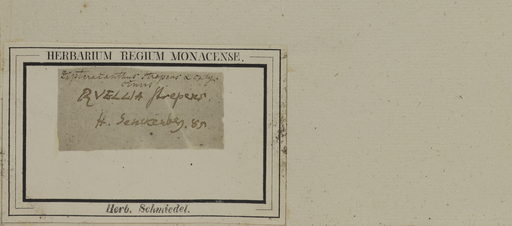 HERBARIUM REGIUM MONACENSE.
Dipteracanthus strepens
RVELLIA strepens.
H.
Herb. Schmiedel.